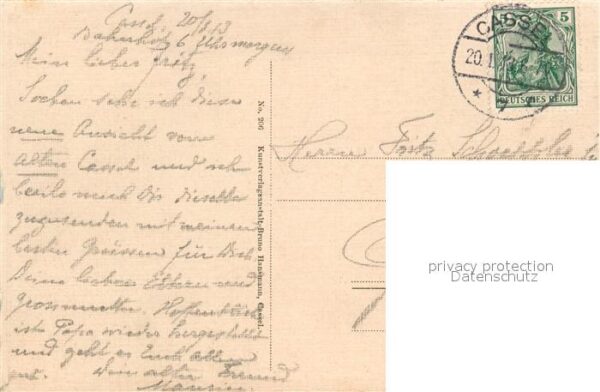 Cassel, 20/1.13
Bahnhof 6 Uhr morgens
Mein lieber Fritz,
Soeben sehe ich diese
neue Ansicht vom
alten Cassel und ich
beeile mich Dir dieselbe
zuzusenden mit meinen
besten Grüssen für Dich
Deine lieben Eltern und
Grossmutter. Hoffentlich
ist Papa wieder hergestellt
und geht es Euch allen
gut. Dein alter Freund
No. 206 Kunstverlagsanstalt Bruno Hansmann, Cassel.
CASSEL
20.1.
5
DEUTSCHES REICH
Herrn Fritz
privacy protection
Datenschutz